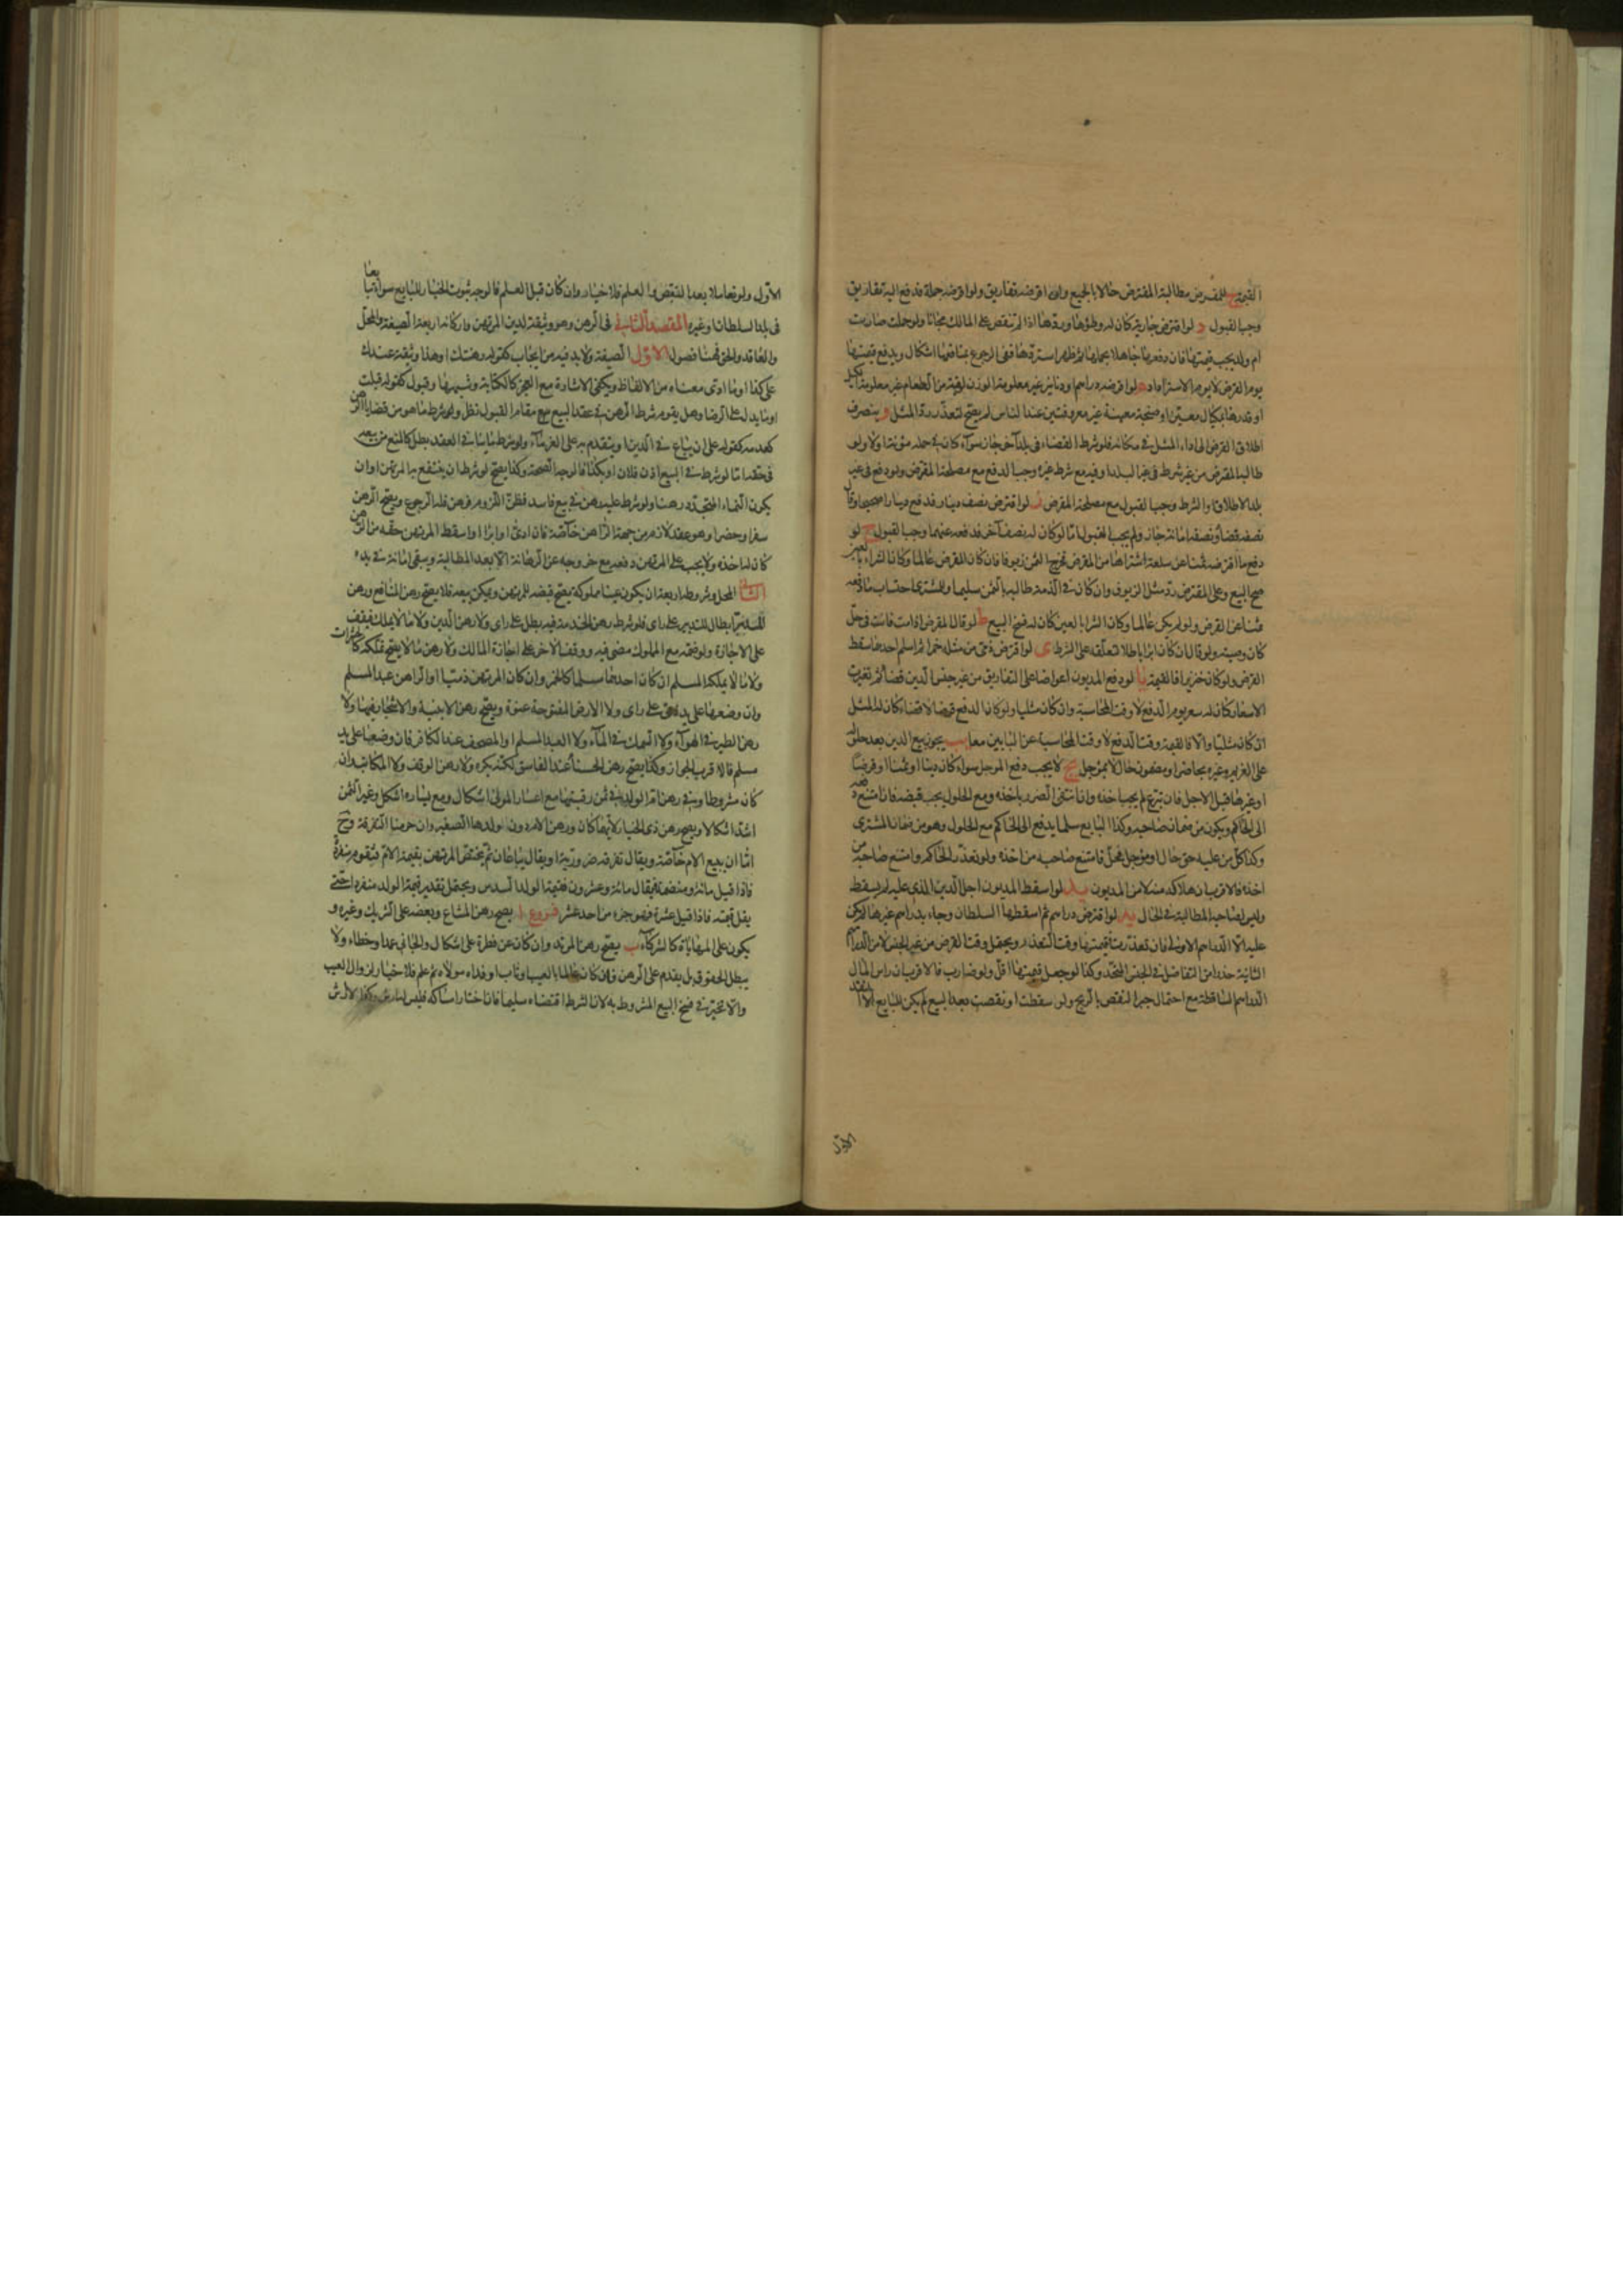 القيمة ج للمقرض مطالبة المقترض حالا بالجميع وان اقرضه تفاريق ولو اقرضه جملة فدفع اليه تفاريق
وجب القبول د لو اقترض جارية كان له وطؤها وردها اذا لم تنقص على المالك مجانا ولو حملت صارت
ام ولد يجب قيمتها فان دفعها جاهلا بحملها ثم ظهر استردها وفي الرجوع بمنافعها اشكال ويدفع قيمتها
يوم القرض لا يوم الاسترداد ه لو اقرضه دراهم او دنانير غير معلومة الوزن او قبة من الطعام غير معلومة الكيل
او قدرها بمكيال معين او صنجة معينة غير معروفتين عند الناس لم يصح لتعذر رد المثل و ينصرف
اطلاق القرض الى اداء المثل في مكانه فلو شرط القضاء في بلد آخر جاز سواء كان في حمله مؤنة ام لا ولو
طالبه المقرض من غير شرط في غير البلد او فيه مع شرط غيره وجب الدفع مع مصلحة المقرض ولو دفع في غير
بلد الاطلاق او الشرط وجب القبول مع مصلحة المقرض ز لو اقترض نصف دينار فدفع دينارا صحيحا وقال
نصفه قضاء ونصفه امانة جاز ولم يجب القبول اما لو كان له نصف آخر فدفعه عنهما وجب القبول ح لو
دفع ما اقترضه ثمنا عن سلعة اشتراها من المقرض فخرج الثمن زيوفا فان كان المقرض عالما وكان الشراء بالعين
صح البيع وعلى المقترض رد مثل الزيوف وان كان في الذمة طالبه بالثمن سليما وللمشتري احتساب ما دفعه
ثمنا عن القرض ولو لم يكن عالما وكان الشراء بالعين كان له فسخ البيع ط لو قال المقرض اذا مت فانت في حل
كان وصية ولو قال ان كان ابراء باطلا لتعلقه على الشرط ى لو اقترض ذمي من مثله خمرا ثم اسلم احدهما سقط
القرض ولو كان خنزيرا فالقيمة يا لو دفع المديون اعواضا على التفاريق من غير جنس الدين قضاء ثم تغيرت
الاسعار كان له سعر يوم الدفع لا وقت المحاسبة وان كان مثليا ولو كان الدفع قرضا لا قضاء كان له المثل
ان كان مثليا والا فالقيمة وقت الدفع لا وقت المحاسبة عن البابين معا يب يجوز بيع الدين بعد حلوله
على الغريم وغيره بحاضر او مضمون حال لا بمؤجل يج لا يجب دفع المؤجل سواء كان دينا او ثمنا او قرضا
او غيرها قبل الاجل فان تبرع لم يجب اخذه وان انتفى الضرر باخذه ومع الحلول يجب قبضه فان امتنع دفعه
الى الحاكم ويكون من ضمان صاحبه وكذا البايع سلما يدفع الى الحاكم مع الحلول وهو من ضمان المشتري
وكذا كل من عليه حق حال او مؤجل فحل فامتنع صاحبه من اخذه ولو تعذر الحاكم وامتنع صاحبه من
اخذه فالاقرب ان هلاكه منه لا من المديون يد لو اسقط المديون اجل الدين الذي عليه لم يسقط
وليس لصاحبه المطالبة في الحال يه لو اقترض دراهم ثم اسقطها السلطان وجاء بدراهم غيرها لم يكن
عليه الا الدراهم الاولى فان تعذرت فقيمتها وقت التعذر ويحتمل وقت القرض من غير الجنس لا من الدراهم
الثانية حذرا من التفاضل في الجنس المتحد وكذا لو جعل قيمتها اقل ولو ضارب فالاقرب ان راس المال
الدراهم الساقطة مع احتمال جبر النقص بالربح ولو سقطت او نقصت بعد البيع لم يكن للبايع الا النقد
الاول
الاول ولو تعاملا بعد النقص والعلم فلا خيار وان كان قبل العلم فالوجه ثبوت الخيار للبايع سواء تبايعا
في بلد السلطان او غيره المقصد الثاني في الرهن وهو وثيقة لدين المرتهن واركانه اربعة الصيغة والمحل
والعاقد والحق فهنا فصول الاول الصيغة ولا بد فيه من ايجاب كقوله رهنتك او هذا وثيقة عندك
على كذا او ما ادى معناه من الالفاظ ويكفي الاشارة مع العجز كالكتابة وشبهها وقبول كقوله قبلت
او ما يدل على الرضا وهل يقوم شرط الرهن في عقد البيع مقام القبول نظر ولو شرط ما هو من قضايا الرهن
كعدمه كقوله على ان يباع في الدين او يتقدم به على الغرماء ولو شرط ما ينافي العقد بطل كالمنع من بيعه
في حقه اما لو شرط في البيع اذن فلان او بكذا فالوجه الصحة وكذا يصح لو شرط ان ينتفع به المرتهن او ان
يكون النماء المتجدد رهنا ولو شرط عليه رهن في بيع فاسد فظن اللزوم فرهن فله الرجوع ويصح الرهن
سفرا وحضرا وهو عقد لازم من جهة الراهن خاصة فان ادى او ابرا او اسقط المرتهن حقه من الرهن
كان له اخذه ولا يجب على المرتهن دفعه مع خروجه عن الرهانة الا بعد المطالبة ويبقى امانة في يده
الثاني المحل وشروطه اربعة ان يكون عينا مملوكة يصح قبضه للمرتهن ويمكن بيعه فلا يصح رهن المنافع ورهن
المدبر ابطال للتدبير على راى فلو شرط رهن الخدمة فيه بطل على راى ولا رهن الدين ولا ما لا يملك فيقف
على الاجازة ولو ضمه مع المملوك مضى فيه ووقف الآخر على اجازة المالك ولا رهن ما لا يصح تملكه كالحشرات
ولا ما لا يملكه المسلم ان كان احدهما مسلما كالخمر وان كان المرتهن ذميا او الراهن عبد المسلم
وان وضعها على يد ذمي على راى ولا الارض المفتوحة عنوة ويصح رهن الابنية والاشجار فيها ولا
رهن الطير في الهواء ولا السمك في الماء ولا العبد المسلم او المصحف عند الكافر فان وضعها على يد
مسلم فالاقرب الجواز وكذا يصح رهن الحسناء عند الفاسق لكنه يكره ولا رهن الوقف ولا المكاتب وان
كان مشروطا وفي رهن ام الولد في ثمن رقبتها مع اعسار المولى اشكال ومع يساره اشكل وغير الثمن
اشد اشكالا ويصح رهن ذي الخيار لايهما كان ورهن الام دون ولدها الصغير وان حرمنا التفرقة وح
اما ان يبيع الام خاصة ويقال تفرقة ضرورية او يقال يباعان ثم يختص المرتهن بقيمة الام فيقوم منفردة
فاذا قيل مائة ومنضمة فيقال مائة وعشرون فقيمة الولد السدس ويحتمل تقدير قيمة الولد منفردا حتى
يقل قيمته فاذا قيل عشرة فهو جزء من احد عشر فروع ا يصح رهن المشاع وبعضه على الشريك وغيره و
يكون على المهاياة كالشركاء ب يصح رهن المرتد وان كان عن فطرة على اشكال والجاني عمدا وخطاء ولا
يبطل الحقوق بل يقدم على الرهن فان كان عالما بالعيب او تاب او فداه مولاه ثم علم فلا خيار لزوال العيب
والا تخير في فسخ البيع المشروط به لان الشرط اقتضاه سليما فان اختار امساكه فليس له ارش وكذا لا ارش